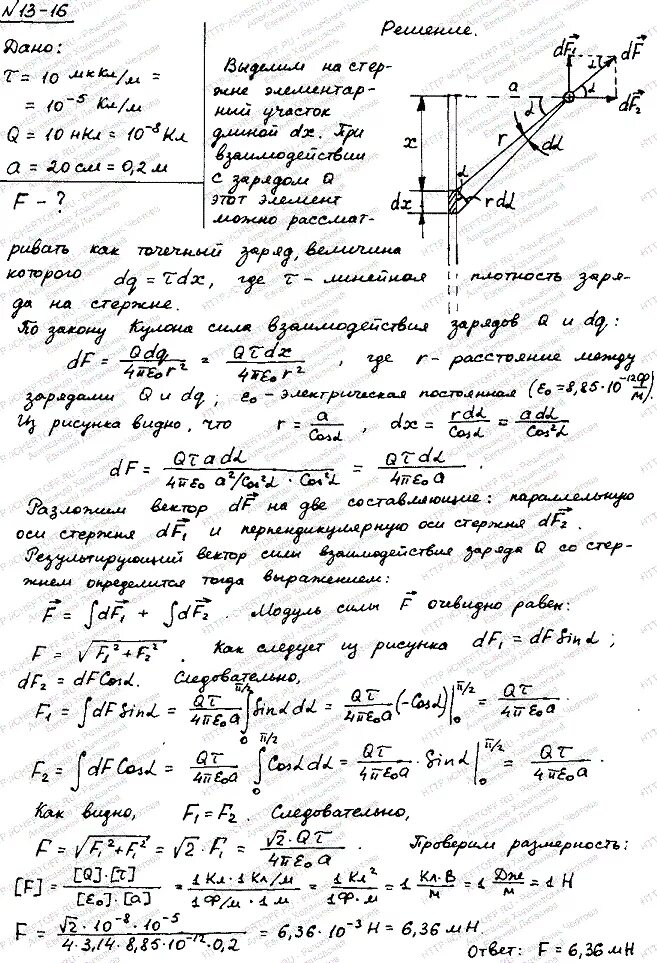 №13-16
Дано:
τ = 10 мкКл/м =
= 10⁻⁵ Кл/м
Q = 10 нКл = 10⁻⁸ Кл
a = 20 см = 0,2 м
F - ?
Решение.
Выделим на стер-
жне элементар-
ный участок
длиной dx. При
взаимодействии
с зарядом Q
этот элемент
можно рассмат-
dF⃗₁ dF⃗
a α α dF⃗₂
x r dα
α
dx rdα
ривать как точечный заряд, величина
которого dq = τdx, где τ - линейная плотность заря-
да на стержне.
По закону Кулона сила взаимодействия зарядов Q и dq:
dF = Qdq/4πε₀r² = Qτdx/4πε₀r², где r - расстояние между
зарядами Q и dq; ε₀ - электрическая постоянная (ε₀=8,85·10⁻¹² Ф/м).
Из рисунка видно, что r = a/Cosα, dx = rdα/Cosα = adα/Cos²α
dF = Qτadα/4πε₀ a²/Cos²α · Cos²α = Qτdα/4πε₀a.
Разложим вектор dF⃗ на две составляющие: параллельную
оси стержня dF⃗₁ и перпендикулярную оси стержня dF⃗₂.
Результирующий вектор силы взаимодействия заряда Q со стер-
жнем определится тогда выражением:
F⃗ = ∫dF⃗₁ + ∫dF⃗₂. Модуль силы F⃗ очевидно равен:
F = √F₁²+F₂². Как следует из рисунка dF₁ = dF Sinα;
dF₂ = dF Cosα. Следовательно,
F₁ = ∫dF Sinα = Qτ/4πε₀a ∫₀^π/2 Sinα dα = Qτ/4πε₀a (-Cosα)|₀^π/2 = Qτ/4πε₀a.
F₂ = ∫dF Cosα = Qτ/4πε₀a ∫₀^π/2 Cosα dα = Qτ/4πε₀a · Sinα|₀^π/2 = Qτ/4πε₀a.
Как видно, F₁=F₂. Следовательно,
F = √F₁²+F₁² = √2·F₁ = √2·Qτ/4πε₀a. Проверим размерность:
[F] = [Q]·[τ]/[ε₀]·[a] = 1Кл·1Кл/м/1Ф/м·1м = 1Кл²/1Ф·м = 1 Кл·В/м = 1 Дж/м = 1 Н
F = √2·10⁻⁸·10⁻⁵/4·3,14·8,85·10⁻¹²·0,2 = 6,36·10⁻³ Н = 6,36 мН.
Ответ: F = 6,36 мН